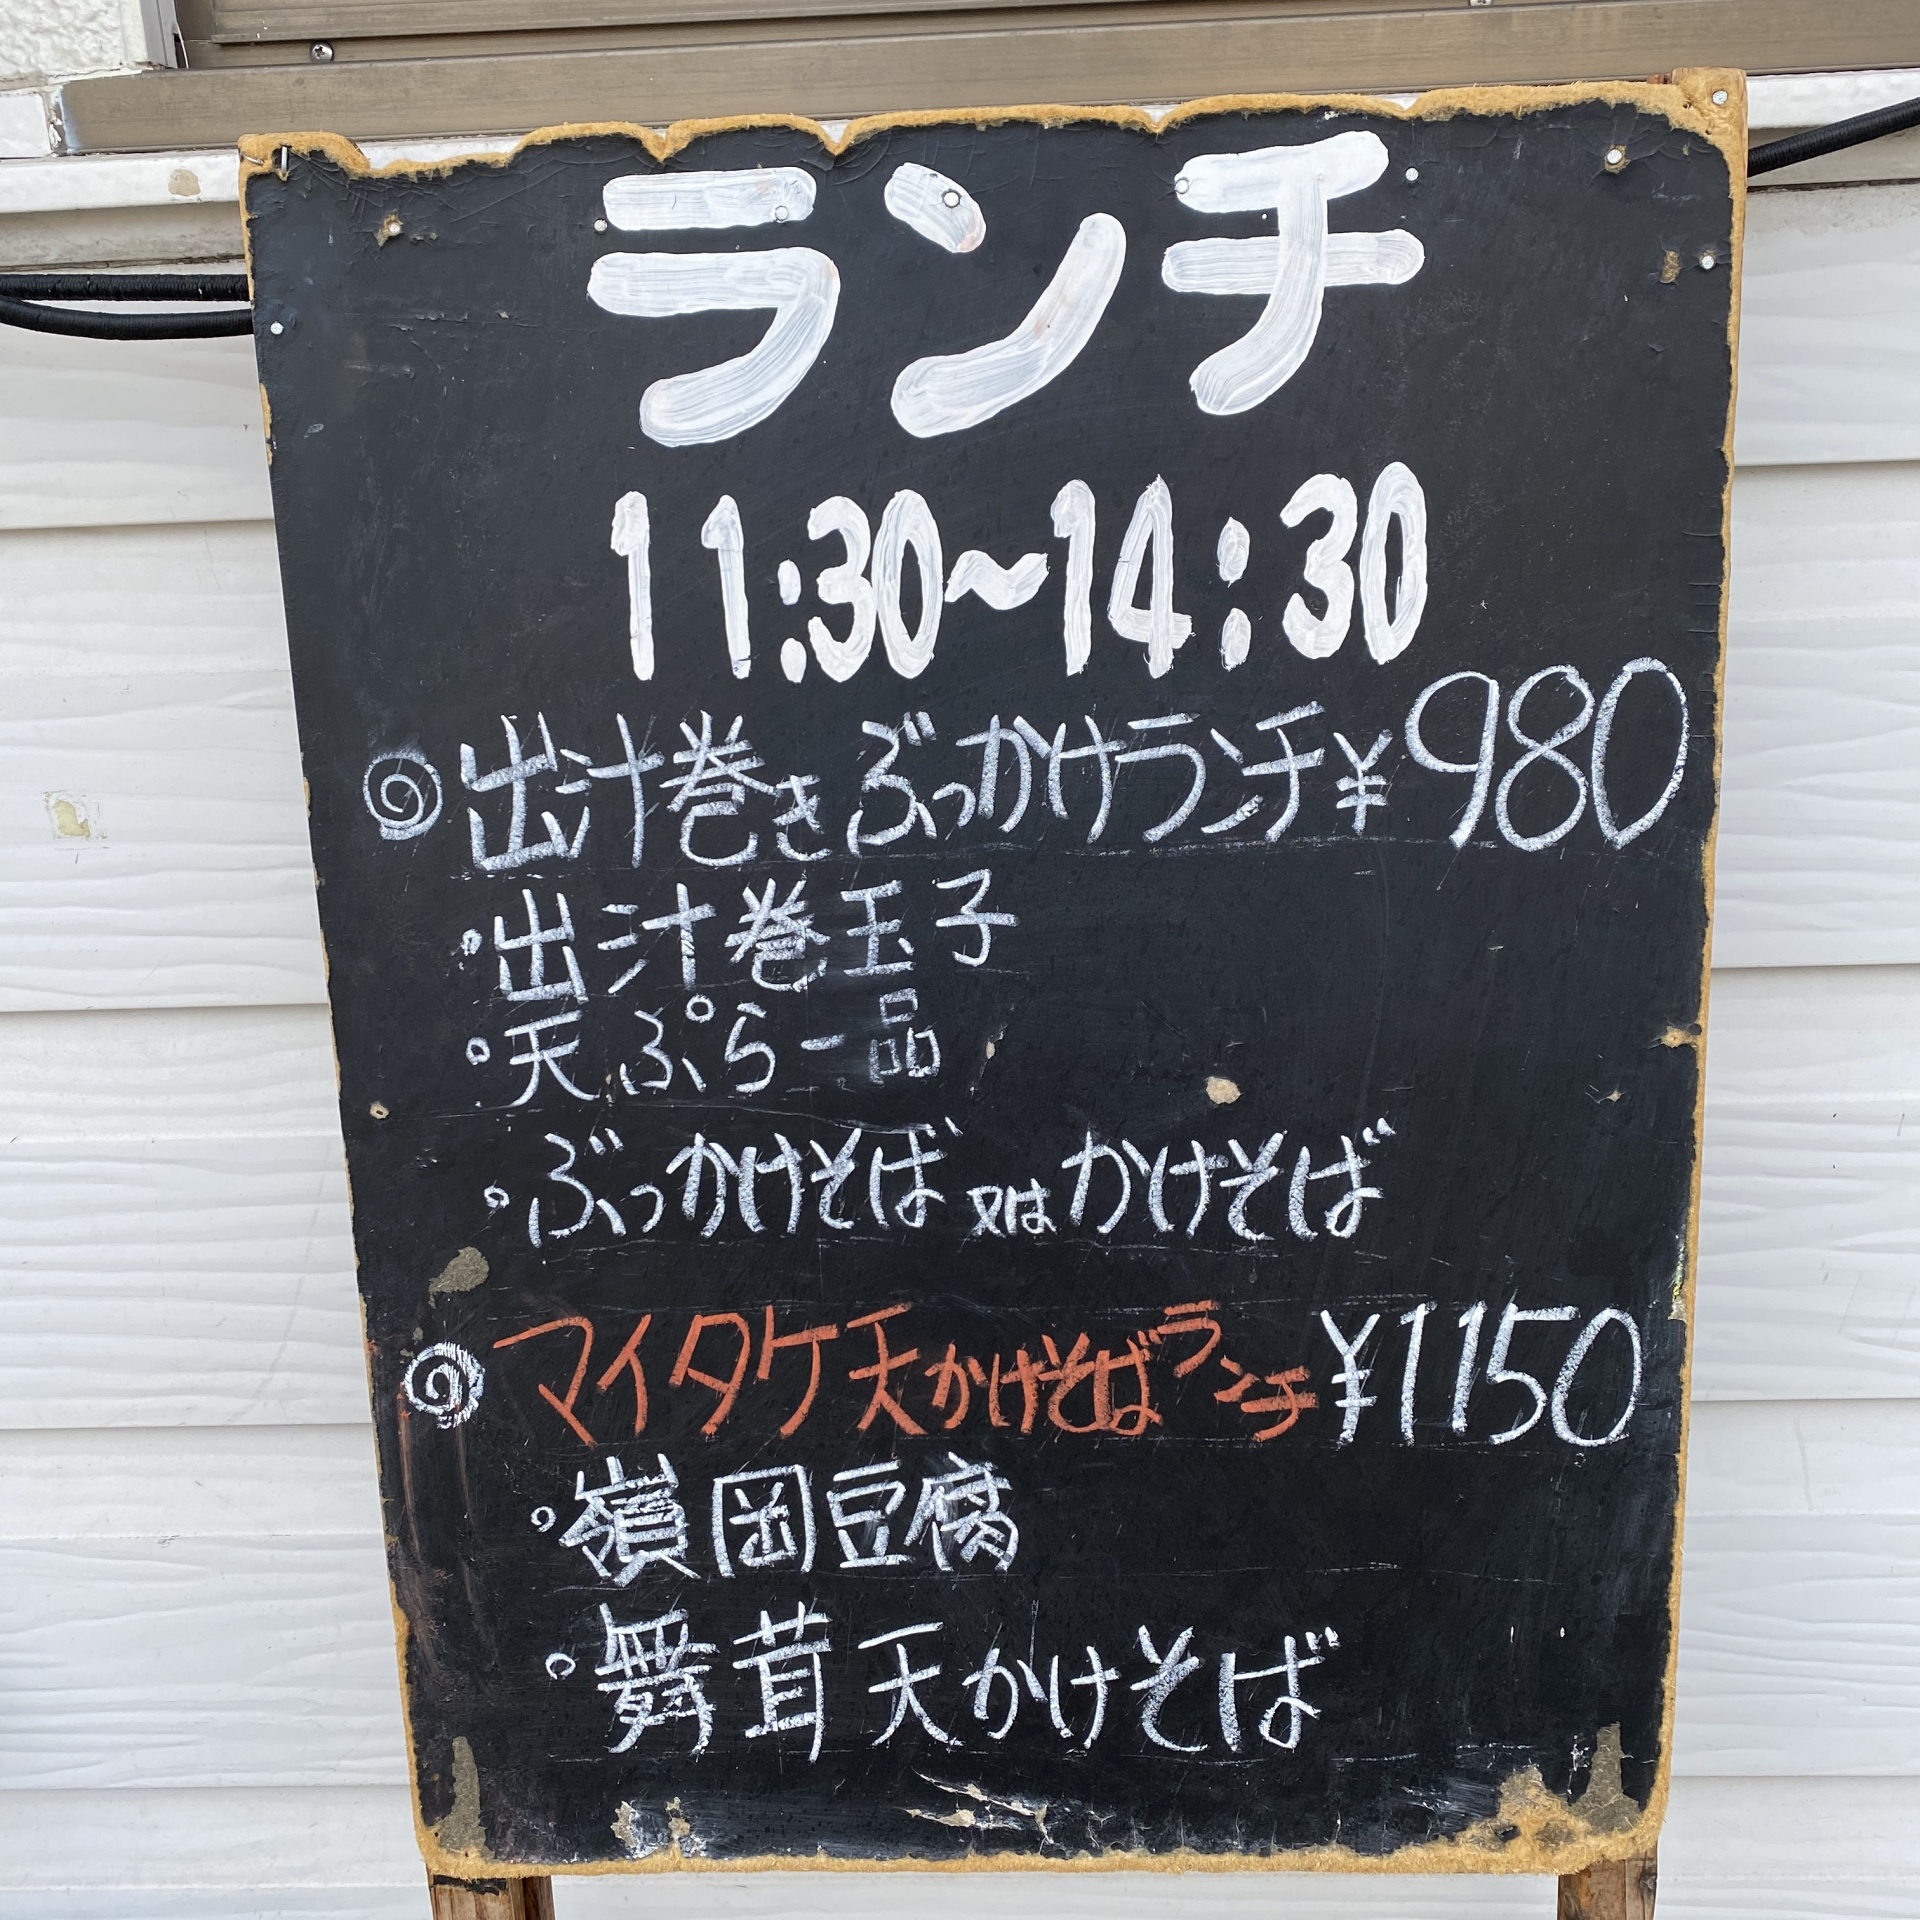 ランチ
11:30〜14:30
◎出汁巻きぶっかけランチ¥980
・出汁巻玉子
・天ぷら一品
・ぶっかけそば又はかけそば
◎マイタケ天かけそばランチ¥1150
・嶺岡豆腐
・舞茸天かけそば